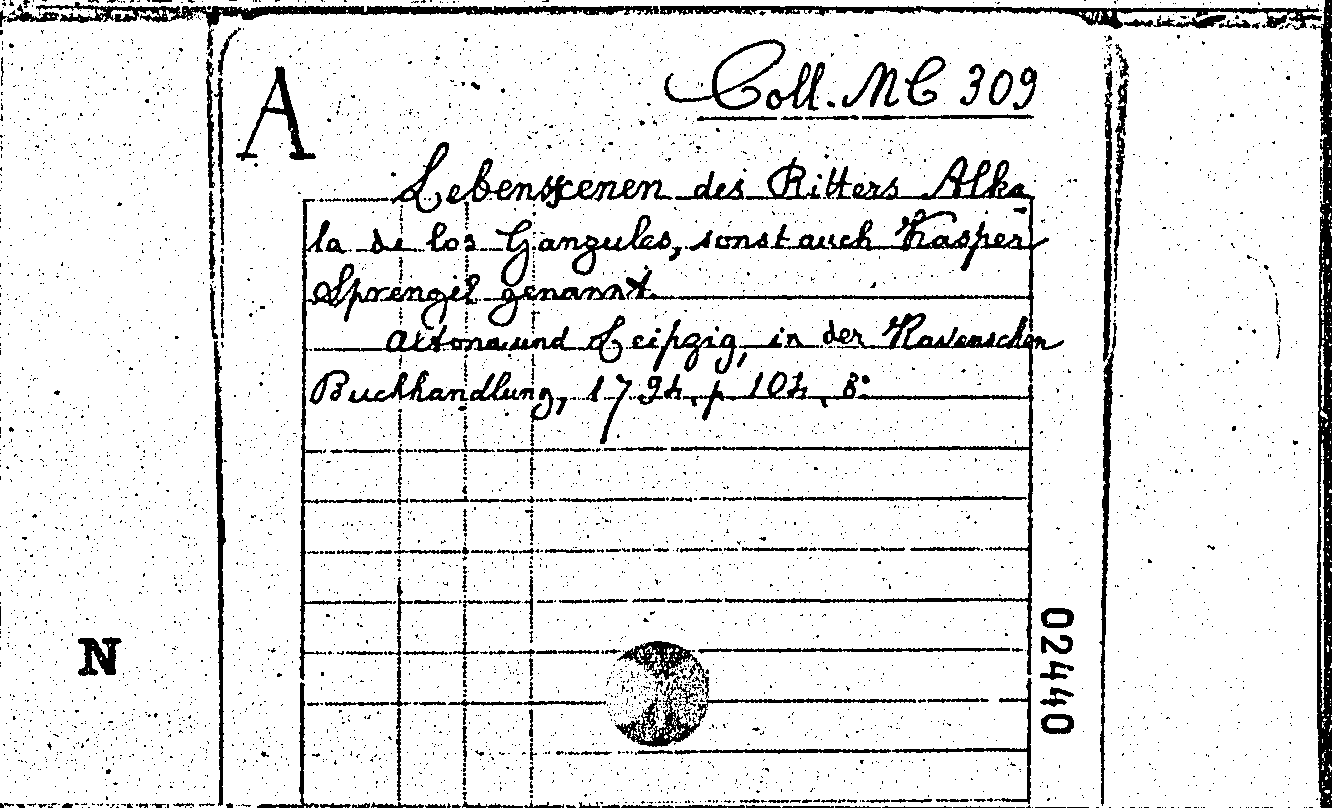 A
Coll. MC 309
Lebensscenen des Ritters Alka
la de los Ganzules, sonst auch Kasper
Sprengil genannt
Altona und Leipzig, in der Kavenschen
Buchhandlung, 1794, p 104, 8º
N
02440